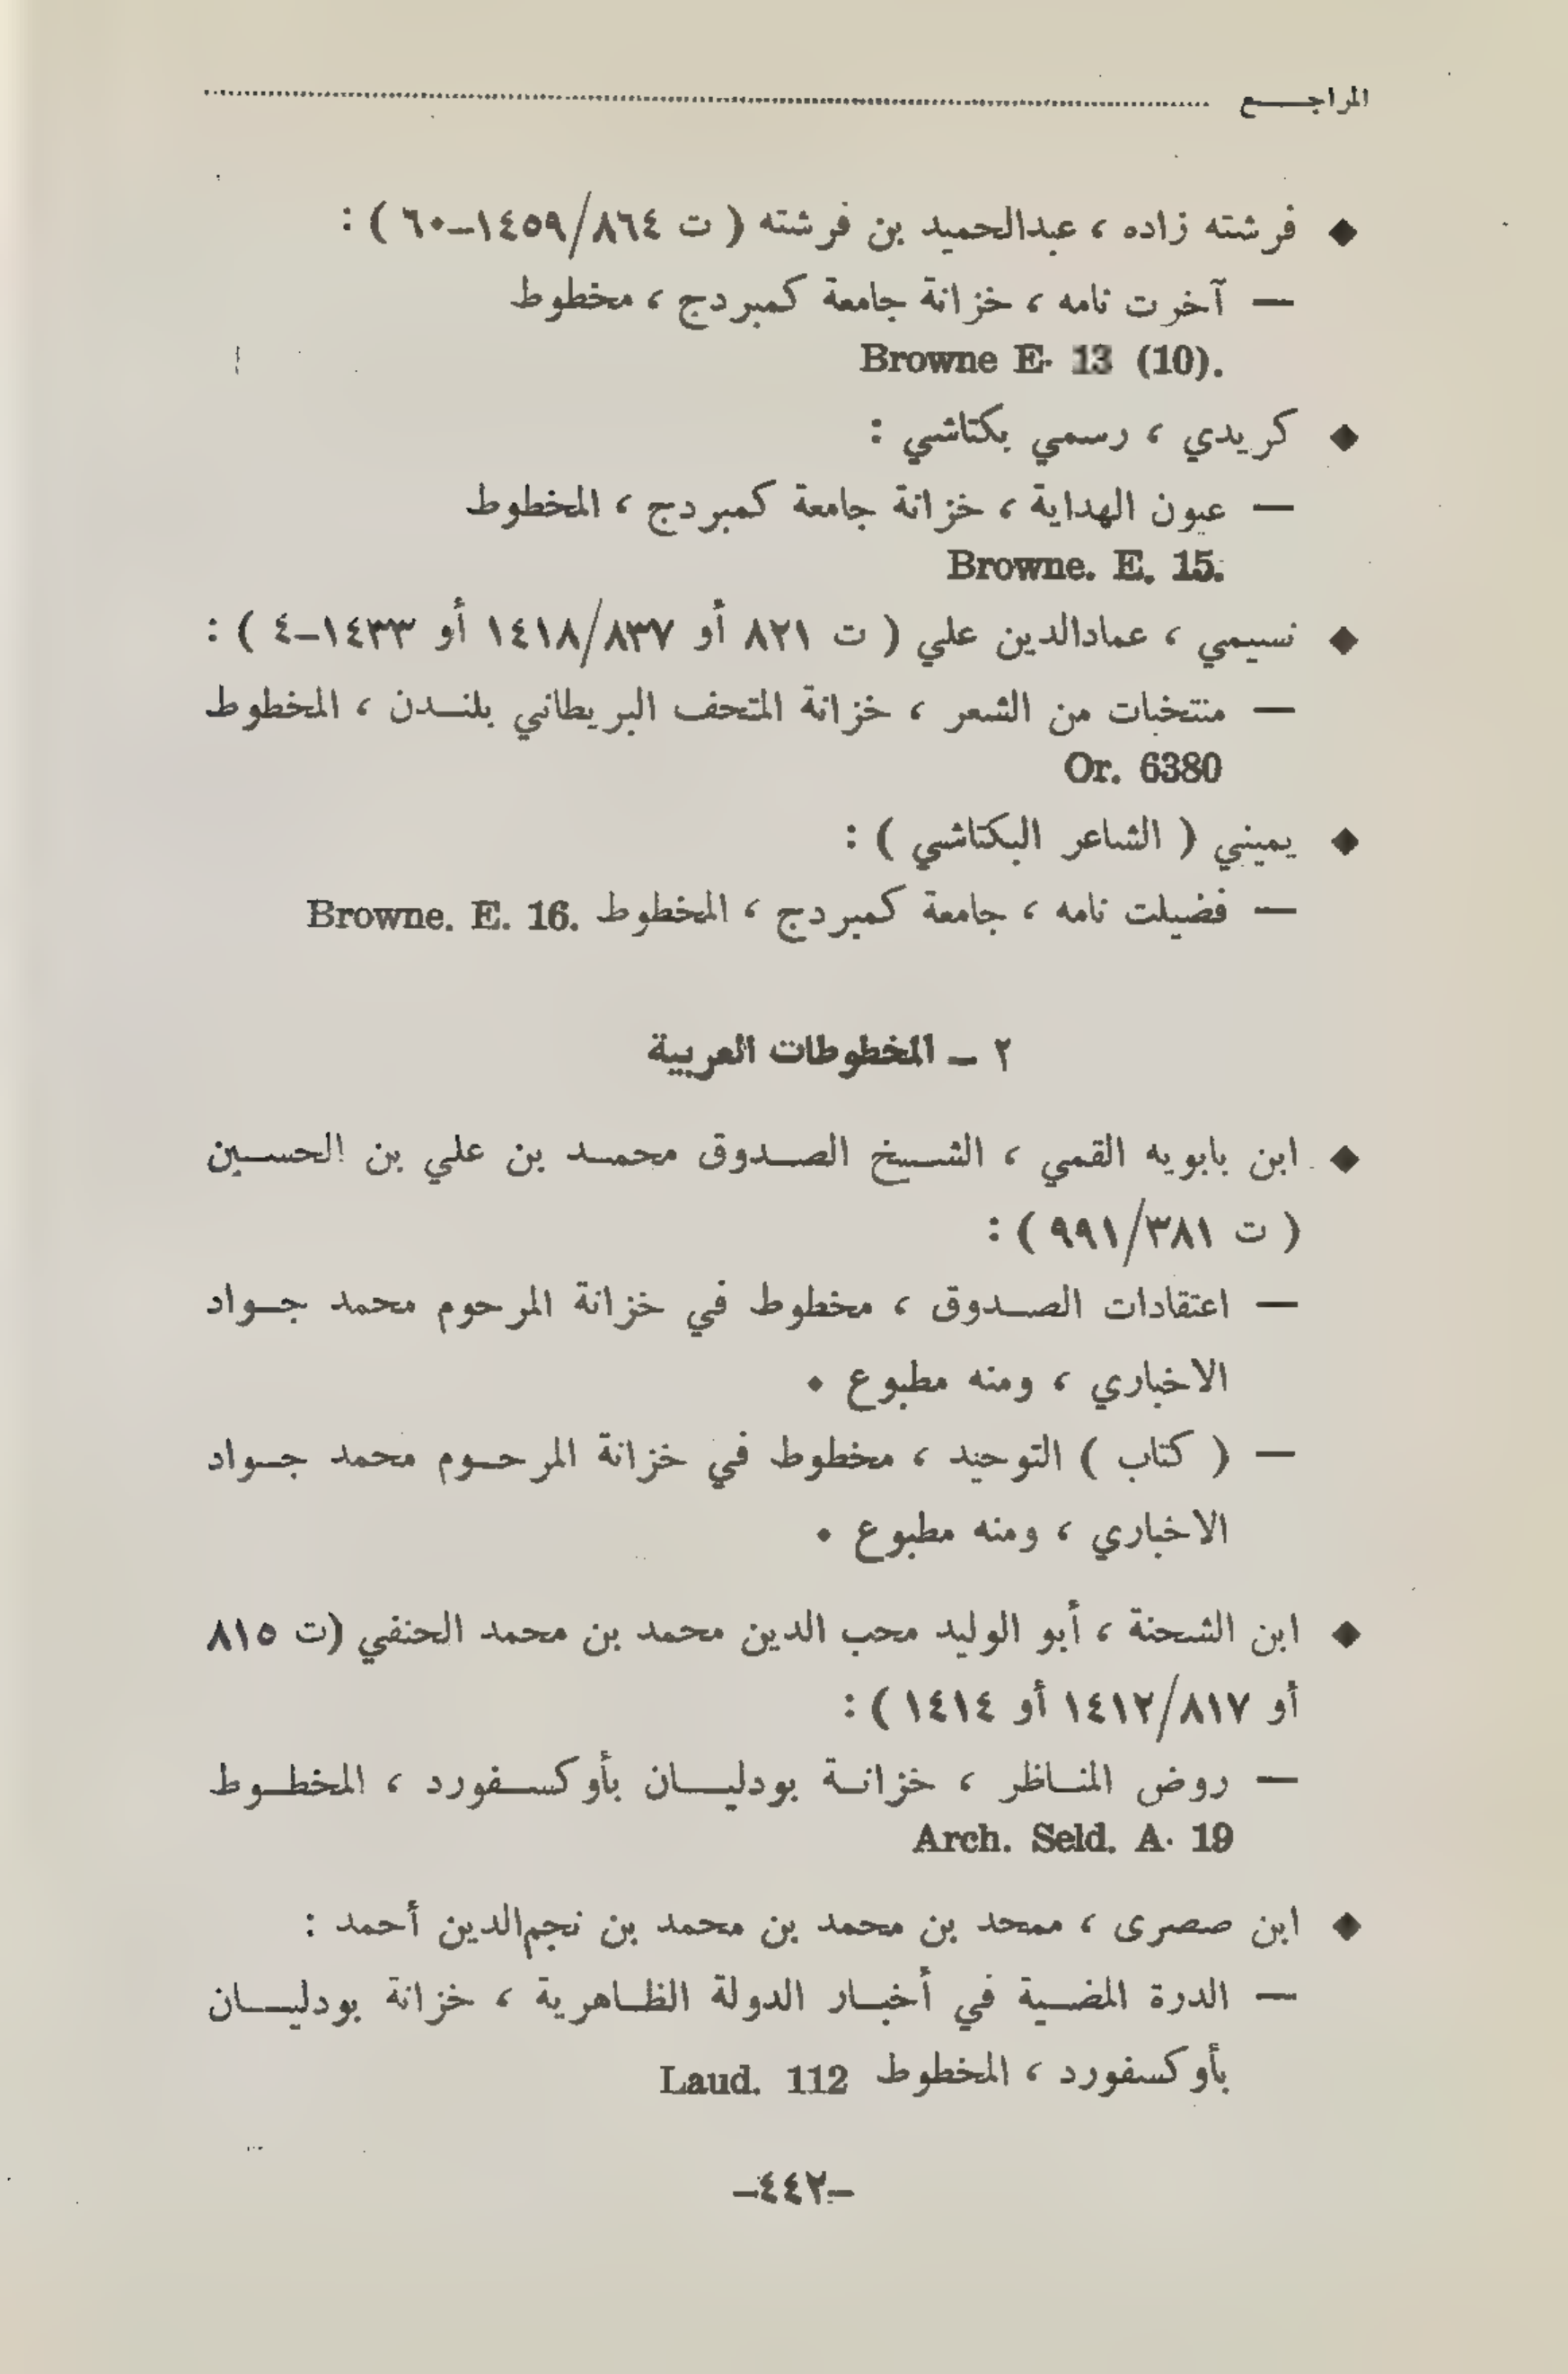 المراجـــع
◆ فرشته زاده ، عبدالحميد بن فرشته ( ت ٨٦٤/١٤٥٩–٦٠ ) :
— آخرت نامه ، خزانة جامعة كمبردج ، مخطوط
Browne E· 13 (10).
◆ كريدي ، رسمي بكتاشي :
— عيون الهداية ، خزانة جامعة كمبردج ، المخطوط
Browne. E. 15.
◆ نسيمي ، عمادالدين علي ( ت ٨٢١ أو ٨٣٧/١٤١٨ أو ١٤٣٣–٤ ) :
— منتخبات من الشعر ، خزانة المتحف البريطاني بلنـدن ، المخطوط
Or. 6380
◆ يميني ( الشاعر البكتاشي ) :
— فضيلت نامه ، جامعة كمبردج ، المخطوط Browne. E. 16.
٢ – المخطوطات العربية
◆ ابن بابويه القمي ، الشـيخ الصـدوق محمـد بن علي بن الحسـين
( ت ٣٨١/٩٩١ ) :
— اعتقادات الصـدوق ، مخطوط في خزانة المرحوم محمد جـواد
الاخباري ، ومنه مطبوع ٠
— ( كتاب ) التوحيد ، مخطوط في خزانة المرحـوم محمد جـواد
الاخباري ، ومنه مطبوع ٠
◆ ابن الشحنة ، أبو الوليد محب الدين محمد بن محمد الحنفي (ت ٨١٥
أو ٨١٧/١٤١٢ أو ١٤١٤ ) :
— روض المنـاظر ، خزانـة بودليـــان بأوكسـفورد ، المخطـوط
Arch. Seld. A· 19
◆ ابن صصرى ، ممحد بن محمد بن محمد بن نجم‌الدين أحمد :
— الدرة المضـية في أخبـار الدولة الظـاهرية ، خزانة بودليـــان
بأوكسفورد ، المخطوط Laud. 112
–٤٤٢–